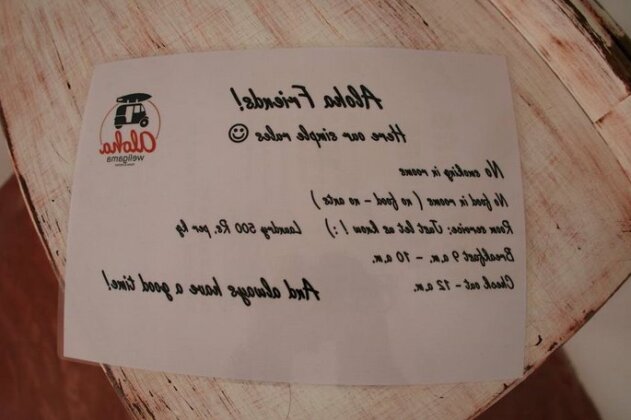 Aloha Friends!
Here our simple rules ☺
No smoking in rooms
No food in rooms ( no food – no ants )
Room service: Just let us know ! :) Laundry 500 Rs. per kg
Breakfast 9 a.m. – 10 a.m.
Check out – 12 a.m.
And always have a good time!
Aloha
weligama